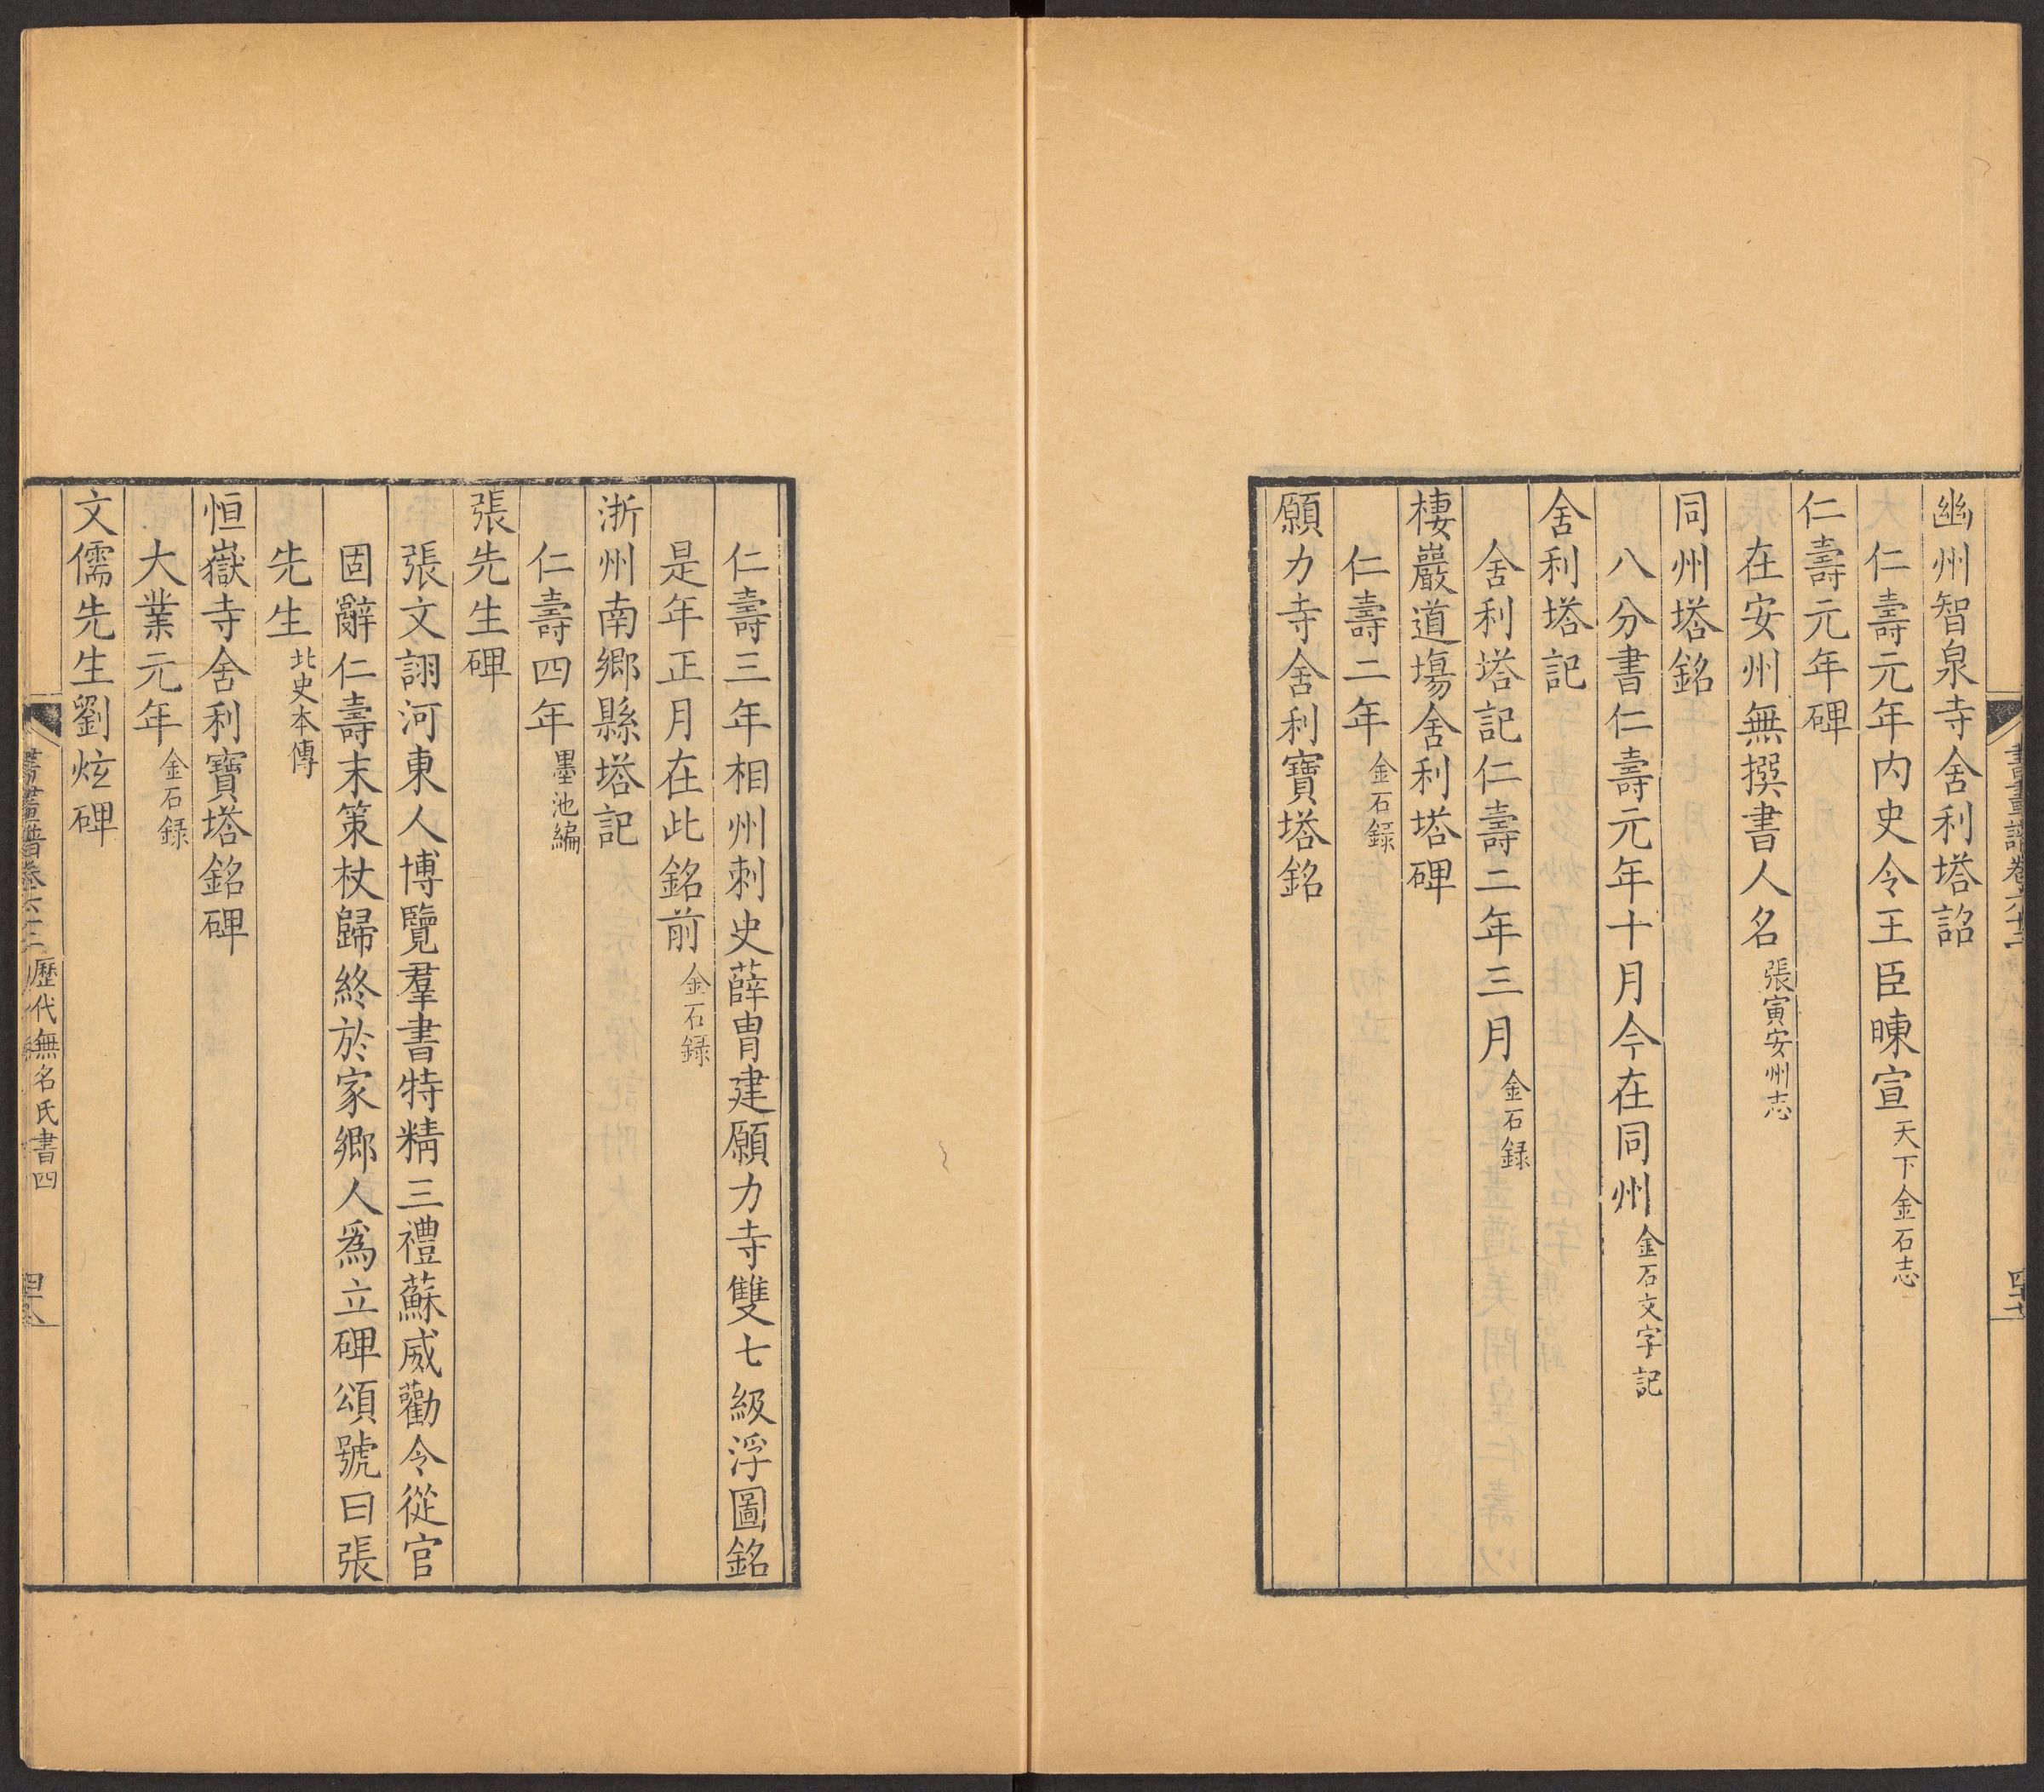 幽州智泉寺舍利塔詔
仁壽元年内史令王臣暕宣天下金石志
仁壽元年碑
在安州無撰書人名張寅安州志
同州塔銘
八分書仁壽元年十月今在同州金石文字記
舍利塔記
舍利塔記仁壽二年三月金石録
棲巖道場舍利塔碑
仁壽二年金石録
願力寺舍利寶塔銘
仁壽三年相州刺史薛胄建願力寺雙七級浮圖銘
是年正月在此銘前金石録
浙州南鄉縣塔記
仁壽四年墨池編
張先生碑
張文詡河東人博覽羣書特精三禮蘇威勸令從官
固辭仁壽末策杖歸終於家鄉人爲立碑頌號曰張
先生北史本傳
恒嶽寺舍利寶塔銘碑
大業元年金石録
文儒先生劉炫碑
書畫譜卷六十二歷代無名氏書四